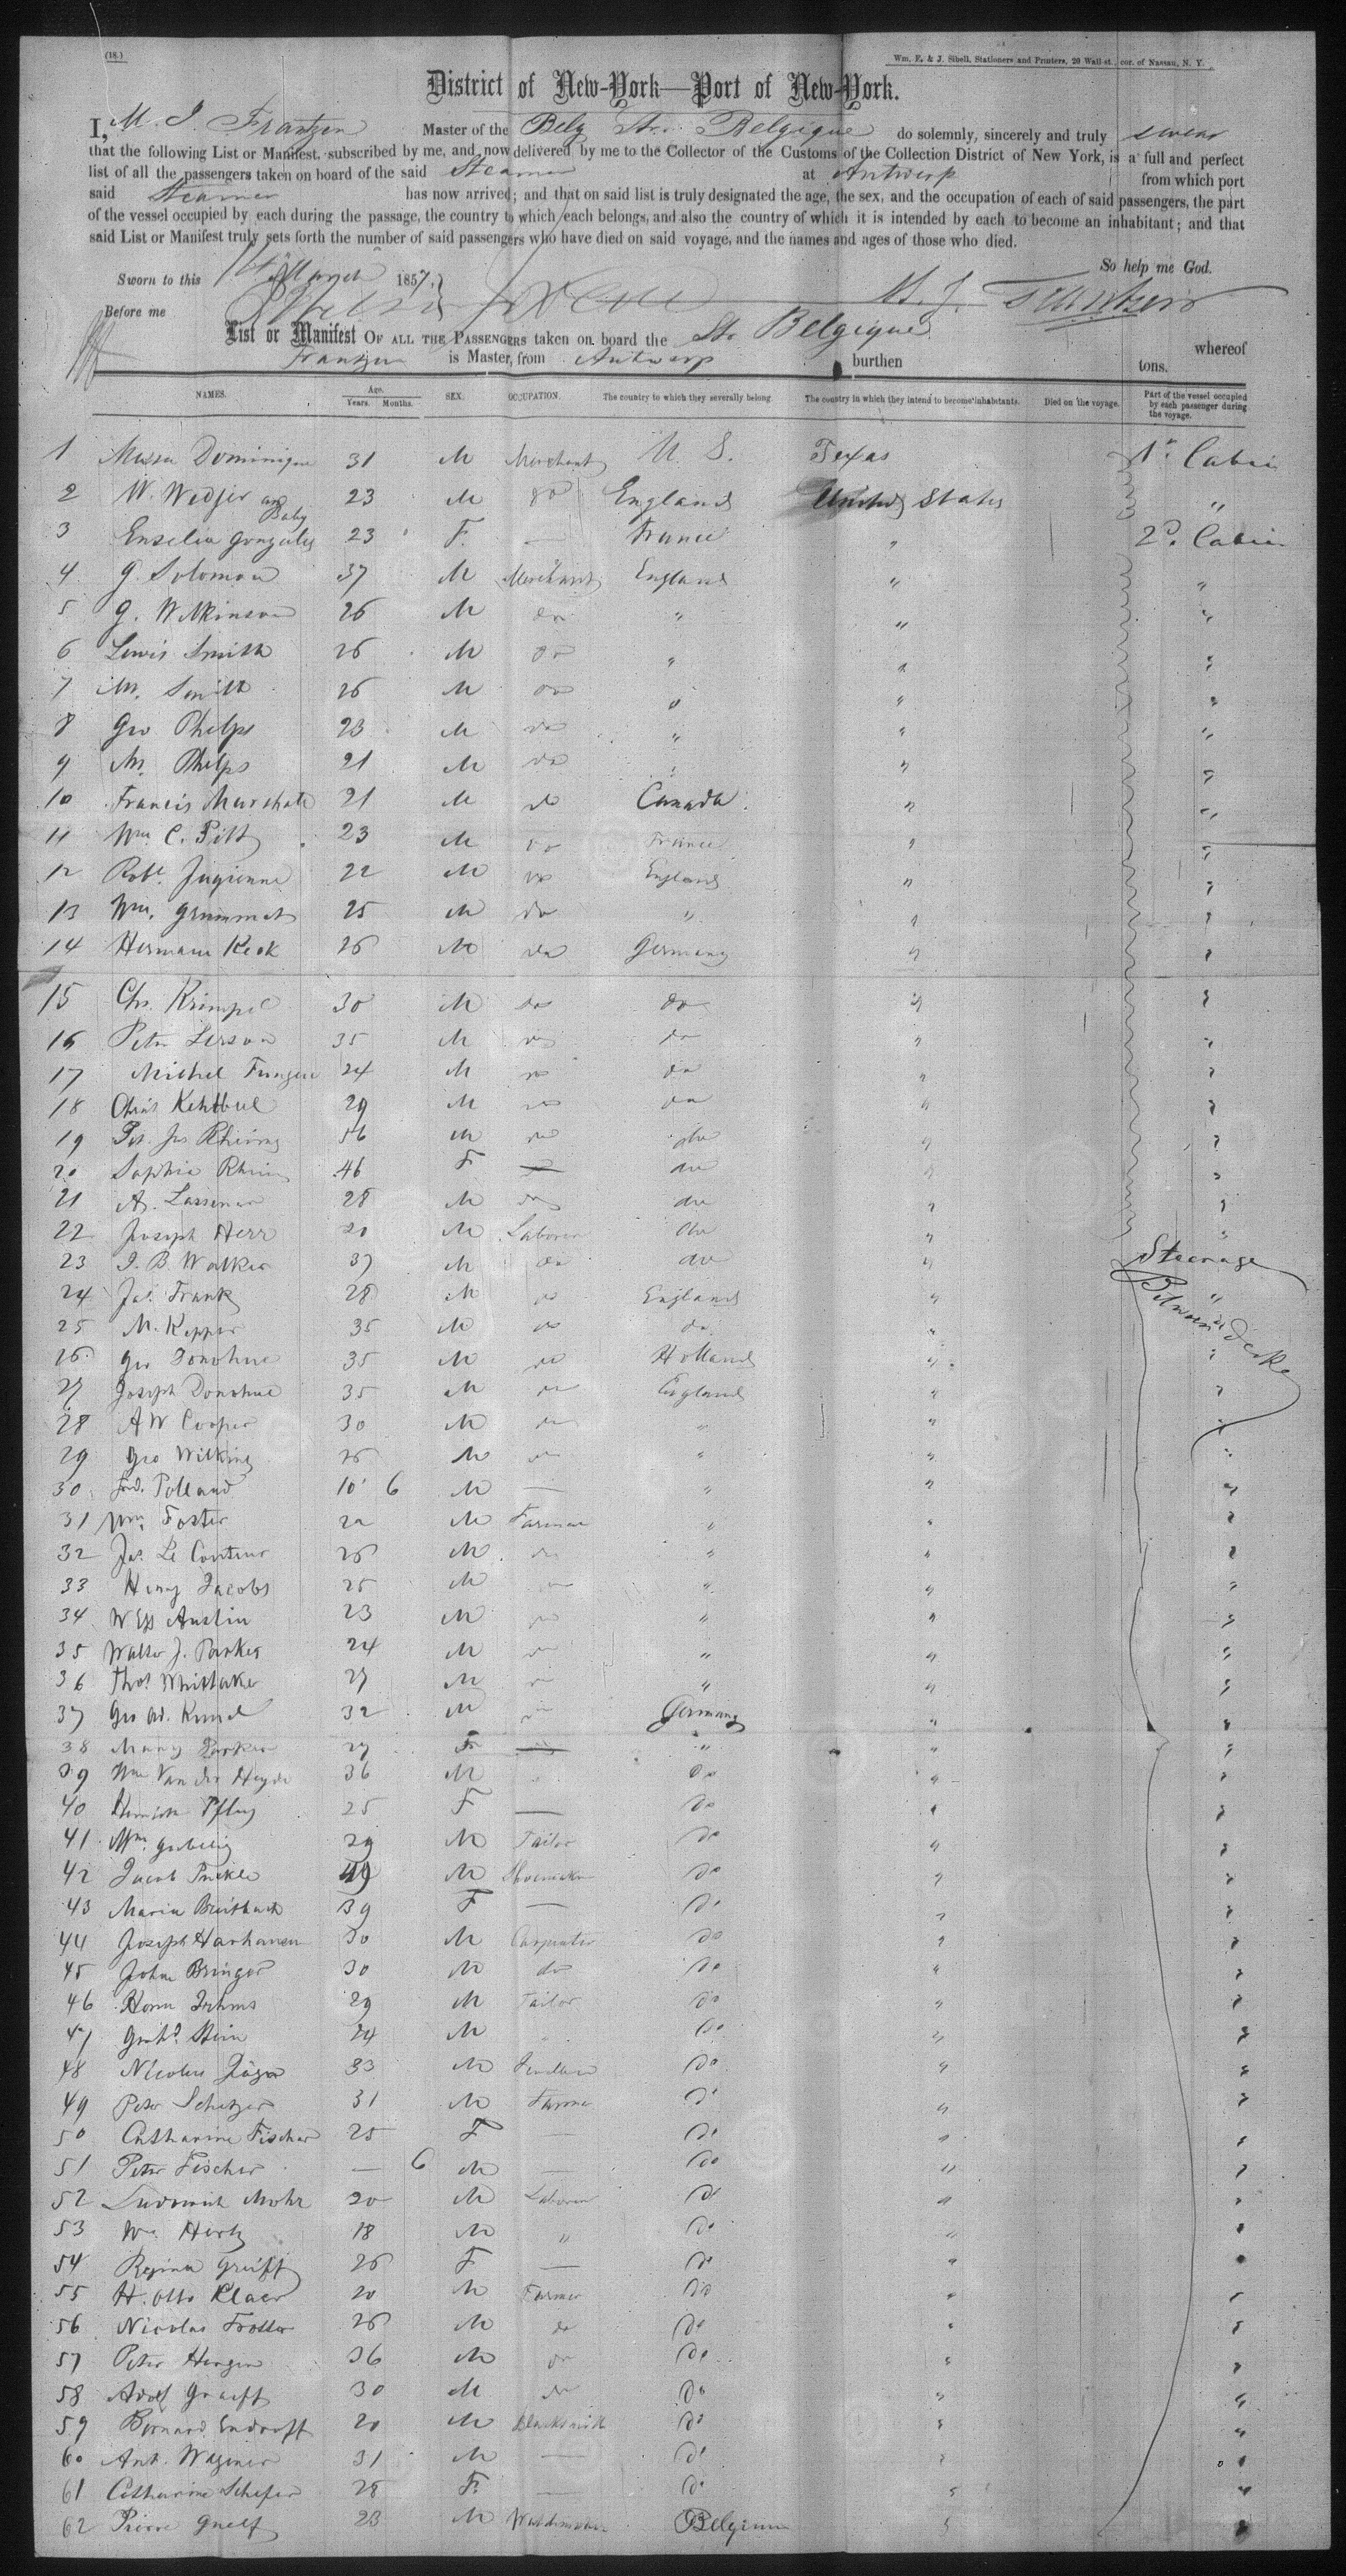 (18.)
Wm. E. & J. Sibell, Stationers and Printers, 20 Wall-st., cor. of Nassau, N. Y.
District of New-York—Port of New-York.
I, M. J. Frantzen Master of the Belg Str. Belgique do solemnly, sincerely and truly swear
that the following List or Manifest, subscribed by me, and now delivered by me to the Collector of the Customs of the Collection District of New York, is a full and perfect
list of all the passengers taken on board of the said Steamer at Antwerp from which port
said Steamer has now arrived; and that on said list is truly designated the age, the sex, and the occupation of each of said passengers, the part
of the vessel occupied by each during the passage, the country to which each belongs, and also the country of which it is intended by each to become an inhabitant; and that
said List or Manifest truly sets forth the number of said passengers who have died on said voyage, and the names and ages of those who died.
So help me God.
Sworn to this March 1857,
Before me M. J. Frantzen
List or Manifest OF ALL THE PASSENGERS taken on board the Str Belgique whereof
Frantzen is Master, from Antwerp burthen tons.
NAMES. Age. Years. Months. SEX. OCCUPATION. The country to which they severally belong. The country in which they intend to become inhabitants. Died on the voyage. Part of the vessel occupied by each passenger during the voyage.
1 Dominique 31 M Merchant U. S. Texas 1st Cabin
2 W. Wedjer and Baby 23 M do England United States "
3 Enselia Gonzales 23 F. — France " 2d. Cabin
4 G. Solomon 37 M Merchant England " "
5 G. Wilkinson 26 M do " " "
6 Lewis Smith 26 M do " " "
7 M. Smith 26 M do " " "
8 Geo Phelps 23 M do " " "
9 M. Phelps 21 M do " " "
10 Francis 21 M do Canada " "
11 Wm C. Pitt 23 M do France " "
12 Robt. 22 M do England " "
13 Wm. Grummet 25 M do " " "
14 Hermann Keck 26 M do Germany " "
15 Chr. Krimpel 30 M do do " "
16 Peter Lerson 35 M do do " "
17 Michel 24 M do do " "
18 29 M do do " "
19 56 M do do " "
20 Sophia 46 F — do " "
21 A. 28 M do do " "
22 Joseph Herr 20 M Laborer do " "
23 J. B. Walker 37 M do do " Steerage
24 Jas. Frank 28 M do England " "
Between Decks
25 M. Kepper 35 M do do " "
26 Geo Donohue 35 M do Holland " "
27 Joseph Donohue 35 M do England " "
28 A W Cooper 30 M do " " "
29 Geo Wilking 26 M do " " "
30 Polland 10 6 M — " " "
31 Wm Foster 22 M Farmer " " "
32 Jas. Le Couteur 26 M do " " "
33 Henry Jacobs 25 M do " " "
34 Austin 23 M do " " "
35 Walter J. Parker 24 M do " " "
36 Thos Whittaker 27 M do " " "
37 Geo 32 M do Germany " "
38 Mary Parker 27 F — " " "
39 Wm Van der Heyde 36 M " do " "
40 Pflug 25 F — do " "
41 Wm. 29 M Tailor do " "
42 Jacob 49 M Shoemaker do " "
43 Maria Breitbach 39 F — do " "
44 Joseph 30 M Carpenter do " "
45 John Bringer 30 M do do " "
46 29 M Tailor do " "
47 Stein 24 M " do " "
48 Nicolas Jäger 33 M do " "
49 Peter 31 M Farmer do " "
50 Catharine Fischer 25 F — do " "
51 Peter Fischer — 6 M — do " "
52 Ludowick Mohr 20 M Laborer do " "
53 Wm Hertz 18 M " do " "
54 Regina Greiff 26 F — do " "
55 H. Otto Klaer 20 M Farmer do " "
56 Nicolas 26 M do do " "
57 Peter 36 M do do " "
58 Adolf Graeff 30 M do do " "
59 Bernard 20 M Blacksmith do " "
60 Ant. Wagner 31 M — do " "
61 Catharine Schefer 28 F. — do " "
62 Pierre 23 M Belgium " "